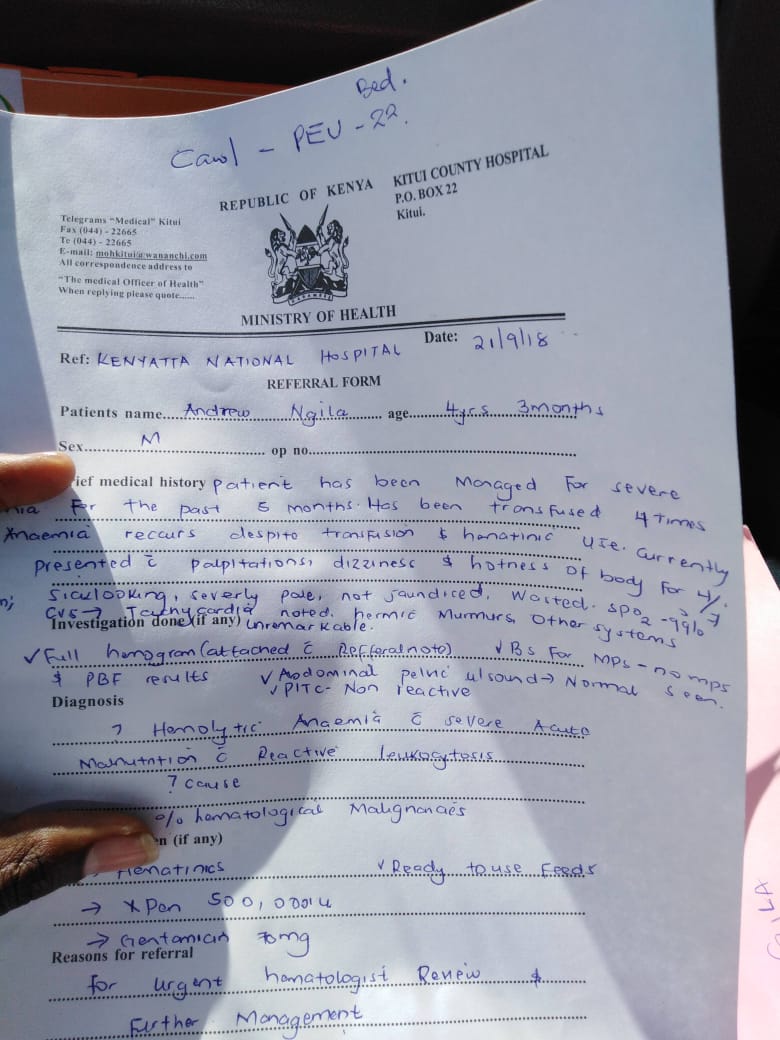 Bed.
Carol - PEU - 22.
REPUBLIC OF KENYA
KITUI COUNTY HOSPITAL
P.O. BOX 22
Kitui.
Telegrams "Medical" Kitui
Fax (044) - 22665
Te (044) - 22665
E-mail: mohkitui@wananchi.com
All correspondence address to
"The medical Officer of Health"
When replying please quote......
MINISTRY OF HEALTH
Date: 21/9/18
Ref: KENYATTA NATIONAL HOSPITAL
REFERRAL FORM
Patients name....Andrew Ngila........ age......4yrs 3months
Sex..........M.......... op no..........
ief medical history patient has been Managed for severe
mia For the past 5 months. Has been transfused 4 times
Anaemia recurs despite transfusion & hematinic use. Currently
presented c̄ palpitations, dizziness & hotness of body for 4/7
Sicklooking, severly pale, not jaundiced, Wasted. SpO2 - 99%
CVS → Tachycardia noted. hermic Murmurs, Other systems
Investigation done (if any) unremarkable.
✓ Full hemogram (attached c̄ Refferal note) ✓ Bs for MPs - no mps seen.
& PBF results ✓ Abdominal pelvic u/sound → Normal
✓ PITC - Non reactive
Diagnosis
? Hemolytic Anaemia c̄ severe Acute
Malnutrition c̄ Reactive leukocytosis
? cause
hematological Malignancies
n (if any)
Hematinics ✓ Ready to use Feeds
→ X Pen 500,000iu
→ Gentamicin 70mg
Reasons for referral
for urgent hematologist Review &
Further Management